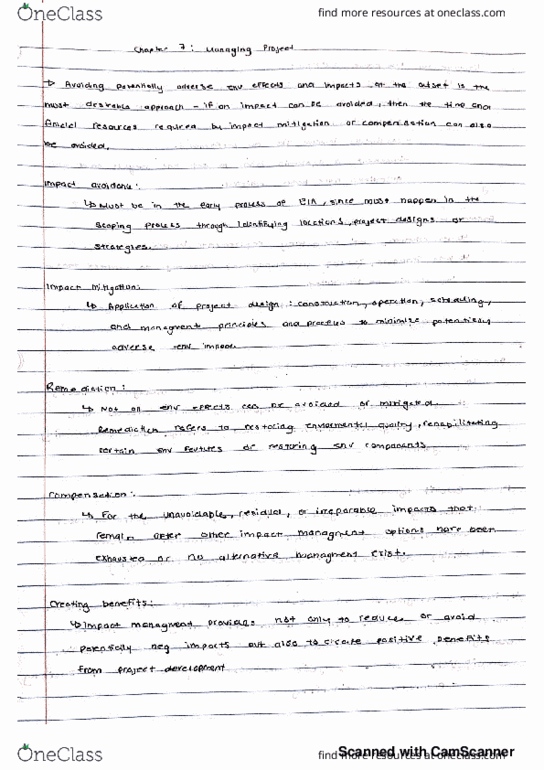 OneClass
find more resources at oneclass.com
Chapter 7: Managing Project
↳ Avoiding potentially adverse env effects and impacts at the outset is the
most desirable approach - if an impact can be avoided, then the time and
resources required by impact mitigation or compensation can also
be avoided.
Impact avoidance:
↳ Must be in the early process of EIA, since must happen in the
scoping process through identifying locations, project designs or
strategies.
Impact mitigation:
↳ Application of project design: construction, operation, scheduling,
and managment principles and process to minimize potentially
adverse env impact
Remediation:
↳ Not all env effects can be avoided or mitigated.
Remediation refers to restoring enviormental quality, rehabilitating
certain env features or restoring env components
Compensation:
↳ For the unavoidable, residual, or irreparable impacts that
remain after other impact managment options have been
exhausted or no alternative managment exist.
Creating benefits:
↳ Impact managment provides not only to reduce or avoid
potentially neg impacts but also to create positive benefits
from project development
OneClass
find more resources at oneclass.com
Scanned with CamScanner